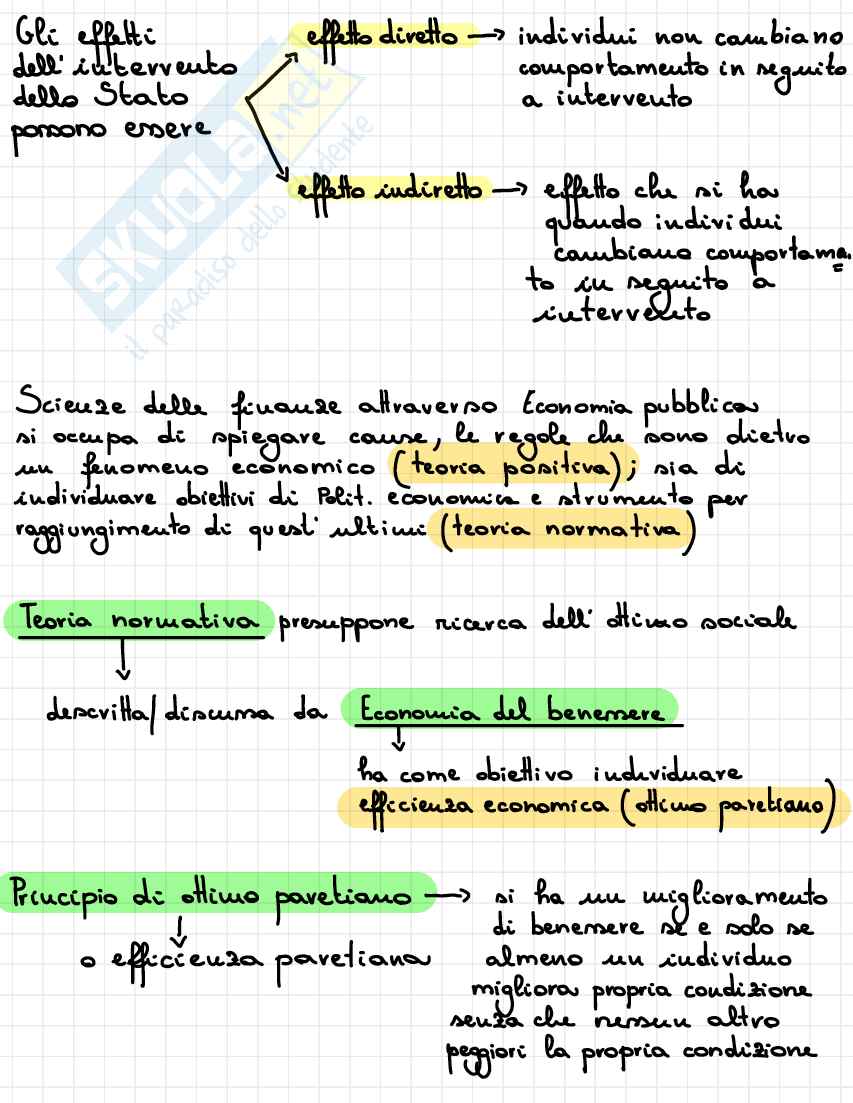 Gli effetti
dell'intervento
dello Stato
possono essere
effetto diretto → individui non cambiano
comportamento in seguito
a intervento
effetto indiretto → effetto che si ha
quando individui
cambiano comportame.
to in seguito a
intervento
SKUOLA.net
il paradiso dello studente
Scienze delle finanze attraverso Economia pubblica
si occupa di spiegare cause, le regole che sono dietro
un fenomeno economico (teoria positiva); sia di
individuare obiettivi di Polit. economica e strumento per
raggiungimento di quest'ultimi (teoria normativa)
Teoria normativa presuppone ricerca dell'ottimo sociale
descritta/discussa da Economia del benessere
ha come obiettivo individuare
efficienza economica (ottimo paretiano)
Principio di ottimo paretiano → si ha un miglioramento
di benessere se e solo se
o efficienza paretiana almeno un individuo
migliora propria condizione
senza che nessun altro
peggiori la propria condizione